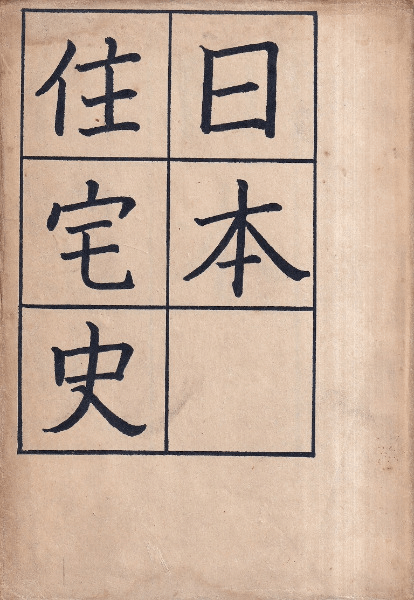 日本
住宅史